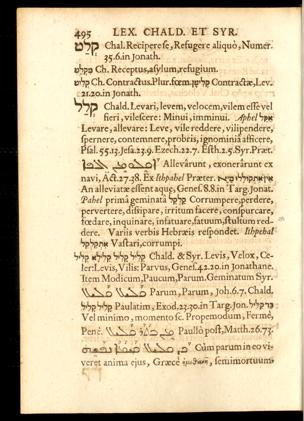 495 LEX. CHALD. ET SYR.
קְלַט Chal. Recipere se, Refugere aliquò, Numer.
35.6.in Jonath.
Ch. Receptus, asylum, refugium.
קליט Ch. Contractus. Plur. fœm. קליטן Contractæ, Lev.
21.20.in Jonath.
קְלַל Chald. Levari, levem, velocem, vilem esse vel
fieri, vilescere: Minui, imminui. Aphel אקל
Levare, allevare: Leve, vile reddere, vilipendere,
spernere, contemnere, probris, ignominiâ afficere,
Psal. 55.13. Jesa. 23.9. Ezech. 22.7. Esth. 2.5. Syr. Præt.
Allevârunt, exonerârunt ex
navi, Act. 27.38. Ex Ithpahel Præter.
An alleviatæ essent aquę, Genes. 8.8.in Targ. Jonat.
Pahel primâ geminatâ קלקל Corrumpere, perdere,
pervertere, dissipare, irritum facere, conspurcare,
fœdare, inquinare, infatuare, fatuum, stultum red-
dere. Variis verbis Hebræis respondet. Ithpehal
אתקלקל Vastari, corrumpi.
קליל קליל קלילא קליל Chald. & Syr. Levis, Velox, Ce-
ler: Levis, Vilis: Parvus, Genes. 42.20.in Jonathane.
Item Modicum, Paucum, Parum. Geminatum Syr.
ܩܠܝܠ ܩܠܝܠ Parum, Parum, Joh. 6.7. Chald.
קליל קליל Paulatim, Exod. 23.30.in Targ. Jon. כקליל
Vel minimo, momento sc. Propemodum, Fermè,
Penè. Paulò post, Matth. 26.73.
Cùm parum in eo vi-
veret anima ejus, Græcè ἡμιθανῆ, semimortuum.